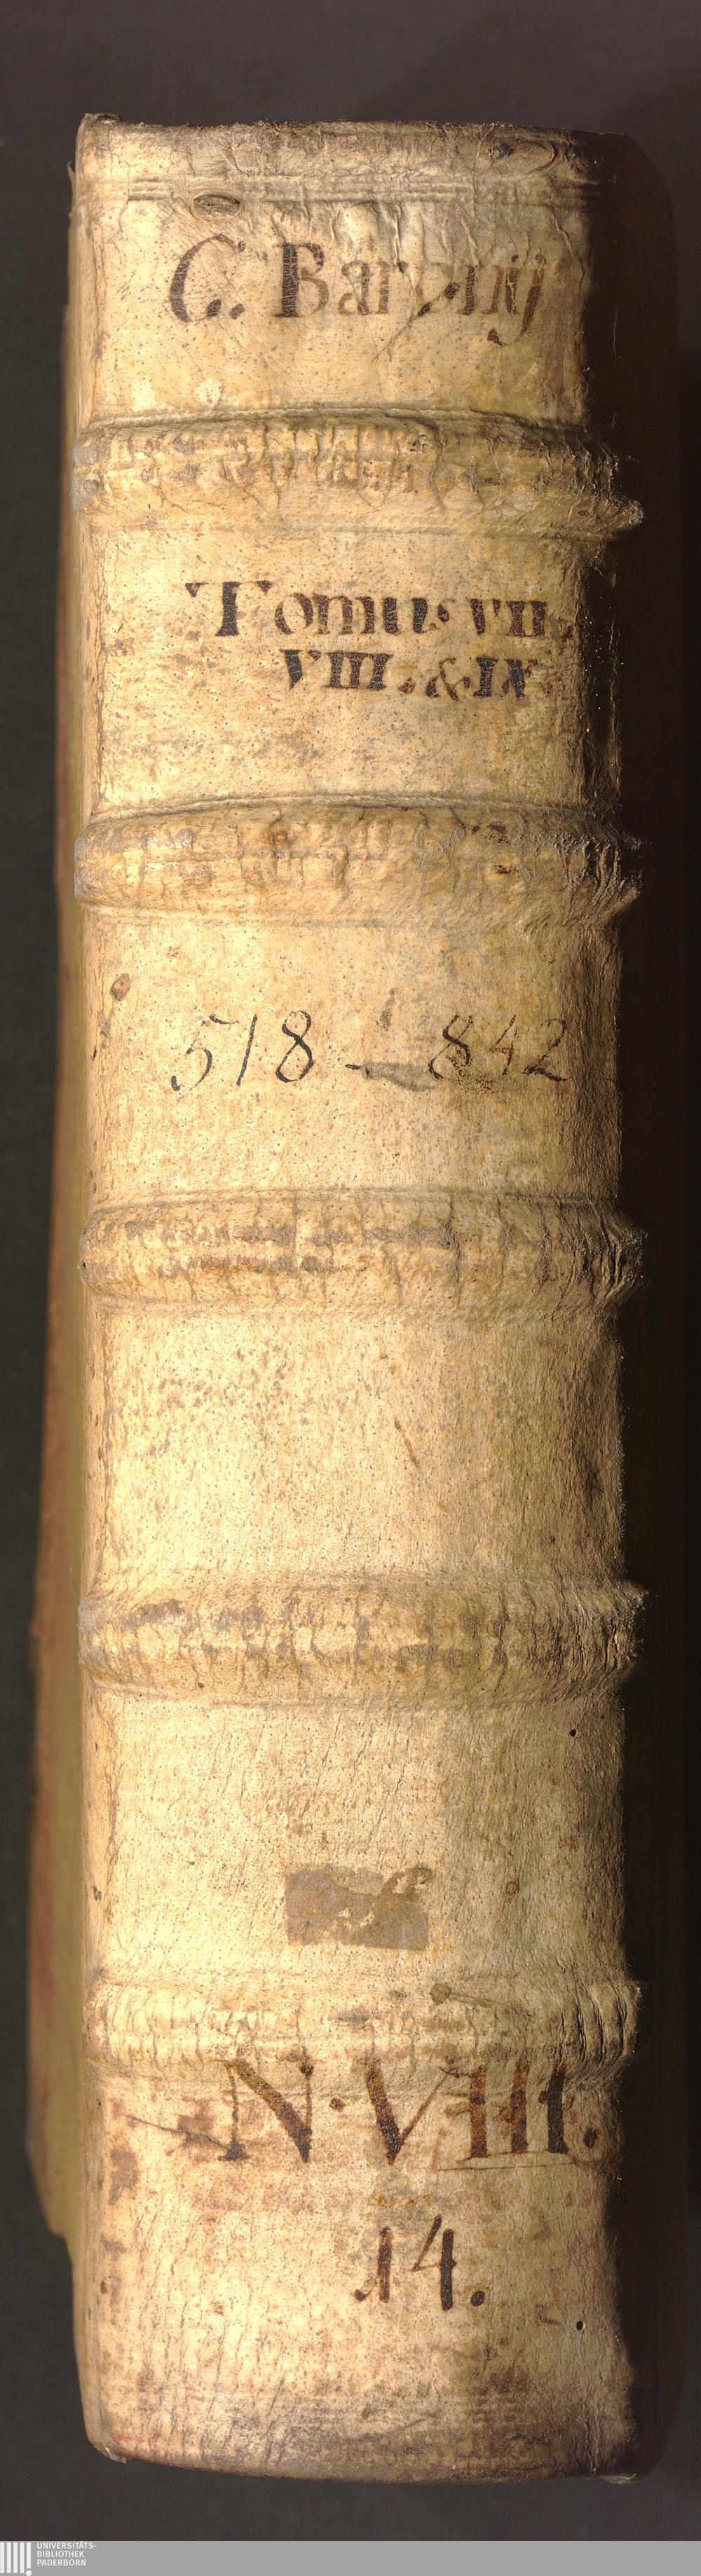 C. Baronij
Tomus VII.
VIII. & IX
518 - 842
N. VIII.
14.
UNIVERSITÄTS-
BIBLIOTHEK
PADERBORN